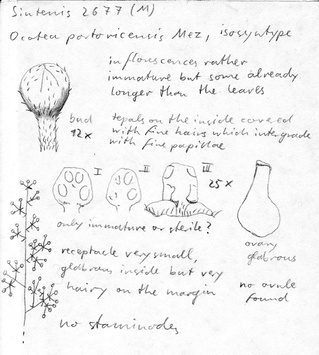 Sintenis 2677 (M)
Ocotea portoricensis Mez, isosyntype
inflorescences rather
immature but some already
longer than the leaves
bud
12x
tepals on the inside covered
with fine hairs which intergrade
with fine papillae
I
II
III
25x
only immature or sterile?
ovary
glabrous
receptacle very small,
glabrous inside but very
hairy on the margin
no ovule
found
no staminodes